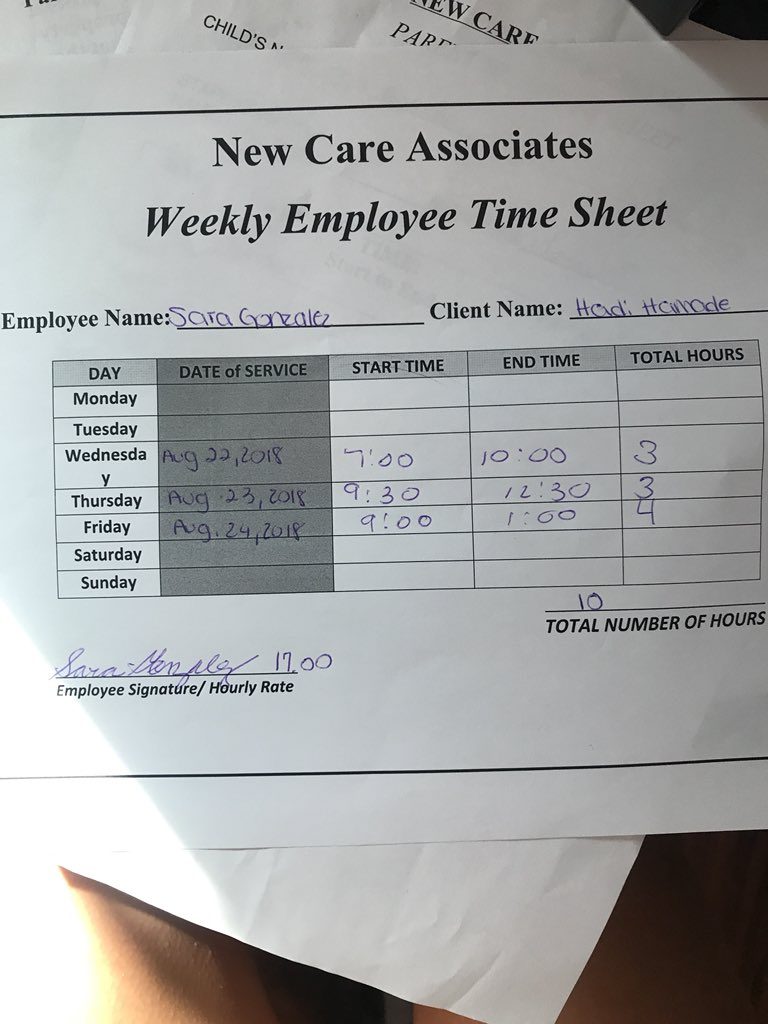 CHILD'S
NEW CARE
New Care Associates
Weekly Employee Time Sheet
Employee Name: Sara Gonzalez Client Name: Hadi Hamade
DAY DATE of SERVICE START TIME END TIME TOTAL HOURS
Monday
Tuesday
Wednesda
y Aug 22,2018 7:00 10:00 3
Thursday Aug 23, 2018 9:30 12:30 3
Friday Aug. 24, 2018 9:00 1:00 4
Saturday
Sunday
10
TOTAL NUMBER OF HOURS
Sara Gonzalez 17.00
Employee Signature/ Hourly Rate